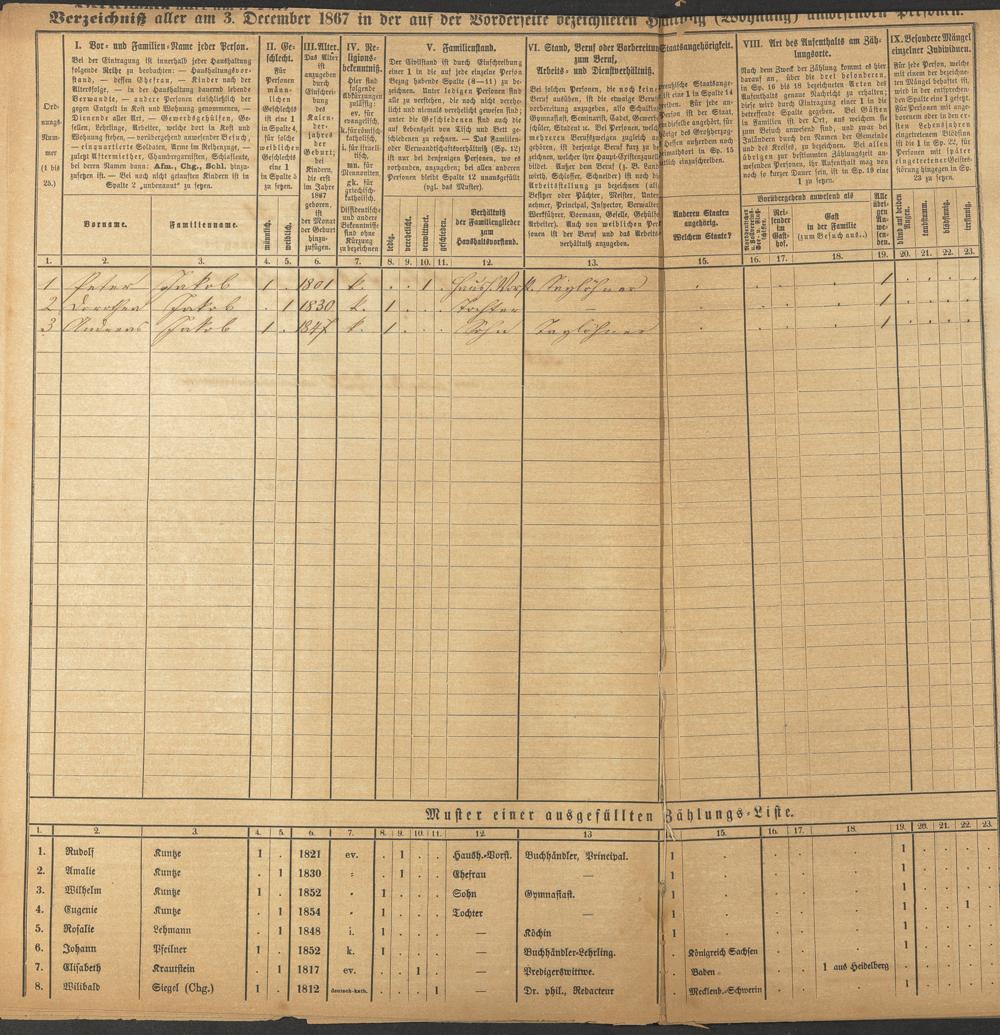 Verzeichniß aller am 3. December 1867 in der auf der Vorderseite bezeichneten (Wohnung) anwesenden Personen.
Ord-
nungs-
Num-
mer
(1 bis
25.)
I. Vor- und Familien-Name jeder Person.
Bei der Eintragung ist innerhalb jeder Haushaltung
folgende Reihe zu beobachten: — Haushaltungsvor-
stand, — dessen Ehefrau, — Kinder nach der
Altersfolge, — in der Haushaltung dauernd lebende
Verwandte, — andere Personen einschließlich der
gegen Entgelt in Kost und Wohnung genommenen, —
Dienende aller Art, — Gewerbsgehülfen, Ge-
sellen, Lehrlinge, Arbeiter, welche dort in Kost und
Wohnung stehen, — vorübergehend anwesender Besuch,
— einquartierte Soldaten, Arme im Reihenzuge, —
zuletzt Aftermiether, Chambergarnisten, Schlafleute,
bei deren Namen dann: Afm., Chg., Schl. hinzu-
zusetzen ist. — Bei noch nicht getauften Kindern ist in
Spalte 2 „unbenannt" zu setzen.
Vorname. Familienname.
II. Ge-
schlecht.
Für
Personen
männ-
lichen
Geschlechts
ist eine 1
in Spalte 4,
für solche
weiblichen
Geschlechts
eine 1
in Spalte 5
zu setzen.
männlich. weiblich.
III. Alter.
Das Alter
ist
anzugeben
durch
Einschrei-
bung
des
Kalen-
der-
jahres
der
Geburt;
bei
Kindern,
die erst
im Jahre
1867
geboren,
ist
der Monat
der Geburt
hinzu-
zufügen.
IV. Re-
ligions-
bekenntniß.
Hier sind
folgende
Abkürzungen
zulässig:
ev. für
evangelisch,
k. für römisch-
katholisch,
i. für israeli-
tisch,
mn. für
Mennoniten,
gk. für
griechisch-
katholisch.
Dissidentische
und andere
Bekenntnisse
sind ohne
Kürzung
zu bezeichnen
V. Familienstand.
Der Civilstand ist durch Einschreibung
einer 1 in die auf jede einzelne Person
Bezug habende Spalte (8—11) zu be-
zeichnen. Unter ledigen Personen sind
alle zu verstehen, die noch nicht verehe-
licht und niemals verehelicht gewesen sind;
unter die Geschiedenen sind auch die
auf Lebenszeit von Tisch und Bett ge-
schiedenen zu rechnen. — Das Familien-
oder Verwandtschaftsverhältniß (Sp. 12)
ist nur bei denjenigen Personen, wo es
vorhanden, einzuschreiben; bei allen anderen
Personen bleibt Spalte 12 unausgefüllt
(vgl. das Muster).
ledig. verehelicht. verwittwet. geschieden.
Verhältniß
der Familienglieder
zum
Haushaltsvorstand.
VI. Stand, Beruf oder Vorbereitung
zum Beruf,
Arbeits- und Dienstverhältniß.
Bei solchen Personen, die noch keinen
Beruf ausüben, ist die etwaige Berufs-
vorbereitung anzugeben, also Schule,
Gymnasiast, Seminarist, Cadet, Gewerbe-
schüler, Student ꝛc. Bei Personen, welche
mehreren Berufszweigen zugleich ange-
hören, ist derjenige Beruf kurz zu be-
zeichnen, welcher ihr Haupt-Existenzmittel
bildet. Außer dem Beruf (z. B. Land-
wirth, Schlosser, Schneider) ist noch die
Arbeitsstellung zu bezeichnen (als
Besitzer oder Pächter, Meister, Unter-
nehmer, Principal, Inspector, Verwalter,
Werkführer, Vormann, Geselle, Gehülfe,
Arbeiter). Auch von weiblichen Per-
sonen ist der Beruf und das Arbeits-
verhältniß anzugeben.
Staatsangehörigkeit.
Anderen Staaten
angehörig.
Welchem Staate?
VIII. Art des Aufenthalts am Zäh-
lungsorte.
Nach dem Zweck der Zählung kommt es hier
darauf an, über die drei besonderen,
in Sp. 16 bis 18 bezeichneten Arten des
Aufenthalts genaue Nachricht zu erhalten;
diese wird durch Eintragung einer 1 in die
betreffende Spalte gegeben. Bei Gästen
in Familien ist der Ort, aus welchem sie
zum Besuch anwesend sind, und zwar bei
Inländern durch den Namen der Gemeinde
und des Kreises, zu bezeichnen. Bei allen
übrigen zur bestimmten Zählungszeit an-
wesenden Personen, ihr Aufenthalt mag von
noch so kurzer Dauer sein, ist in Sp. 19 eine
1 zu setzen.
Vorübergehend anwesend als
Rei-
sender
im
Gast-
hof.
Gast
in der Familie
(zum Besuch aus..)
Alle
übri-
gen
An-
we-
sen-
den.
IX. Besondere Mängel
einzelner Individuen.
Für jede Person, welche
mit einem der bezeichne-
ten Mängel behaftet ist,
wird in der entsprechen-
den Spalte eine 1 gesetzt.
Für Personen mit ange-
borenem oder in den er-
sten Lebensjahren
eingetretenem Blödsinn
ist die 1 in Sp. 22, für
Personen mit später
eingetretener Geistes-
störung hingegen in Sp.
23 zu setzen.
blind auf beiden
Augen. taubstumm. blödsinnig. irrsinnig.
1. 2. 3. 4. 5. 6. 7. 8. 9. 10. 11. 12. 13. 15. 16. 17. 18. 19. 20. 21. 22. 23.
1 Peter Jakob 1 . 1801 k. . . 1 . Haush. Vorst. Taglöhner . . . . 1 . . . .
2 Dorothea Jakob . 1 1830 k. 1 . . . Tochter . . . . 1 . . . .
3 Andreas Jakob 1 . 1847 k. 1 . . . Sohn Taglöhner . . . . 1 . . . .
Muster einer ausgefüllten Zählungs-Liste.
1. 2. 3. 4. 5. 6. 7. 8. 9. 10. 11. 12. 13 15. 16. 17. 18. 19. 20. 21. 22. 23.
1. Rudolf Kuntze 1 . 1821 ev. . 1 . . Haush.-Vorst. Buchhändler, Principal. 1 . . . . 1 . . . .
2. Amalie Kuntze . 1 1830 " . 1 . . Ehefrau — 1 . . . . 1 . . . .
3. Wilhelm Kuntze 1 . 1852 " 1 . . . Sohn Gymnasiast. 1 . . . . 1 . . . .
4. Eugenie Kuntze . 1 1854 " 1 . . . Tochter — 1 . . . . 1 . . 1 .
5. Rosalie Lehmann . 1 1848 i. 1 . . . — Köchin 1 . . . . 1 . . . .
6. Johann Pfeilner 1 . 1852 k. 1 . . . — Buchhändler-Lehrling. . Königreich Sachsen . . . 1 . . . .
7. Elisabeth Krautstein . 1 1817 ev. . . 1 . — Predigerswittwe. . Baden . . 1 aus Heidelberg . . . . .
8. Wilibald Siegel (Chg.) 1 . 1812 deutsch-kath. . . . 1 — Dr. phil., Redacteur . Mecklenb.-Schwerin . . . 1 . . . .